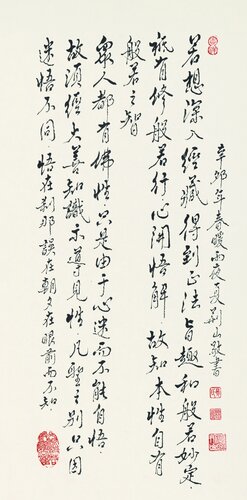 若想深入經藏得到正法旨趣和般若妙定
祇有修般若行心開悟解故知本性自有
般若之智
眾人都有佛性只是由于心迷而不能自悟
故須經大善知識示導見性凡聖之別只因
迷悟不同悟在剎那誤在朝夕在眼前而不知
辛卯年春暖雨夜長荆山敬書